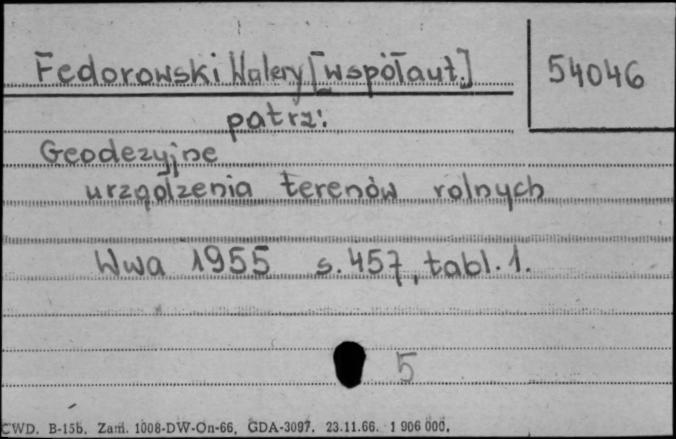 Fedorowski Walery [współaut.]
54046
patrz:
Geodezyjne
urządzenia terenów rolnych
Wwa 1955 s. 457, tabl. 1.
5
CWD. B-15b. Zam. 1008-DW-On-66, GDA-3097. 23.11.66. 1 906 000.